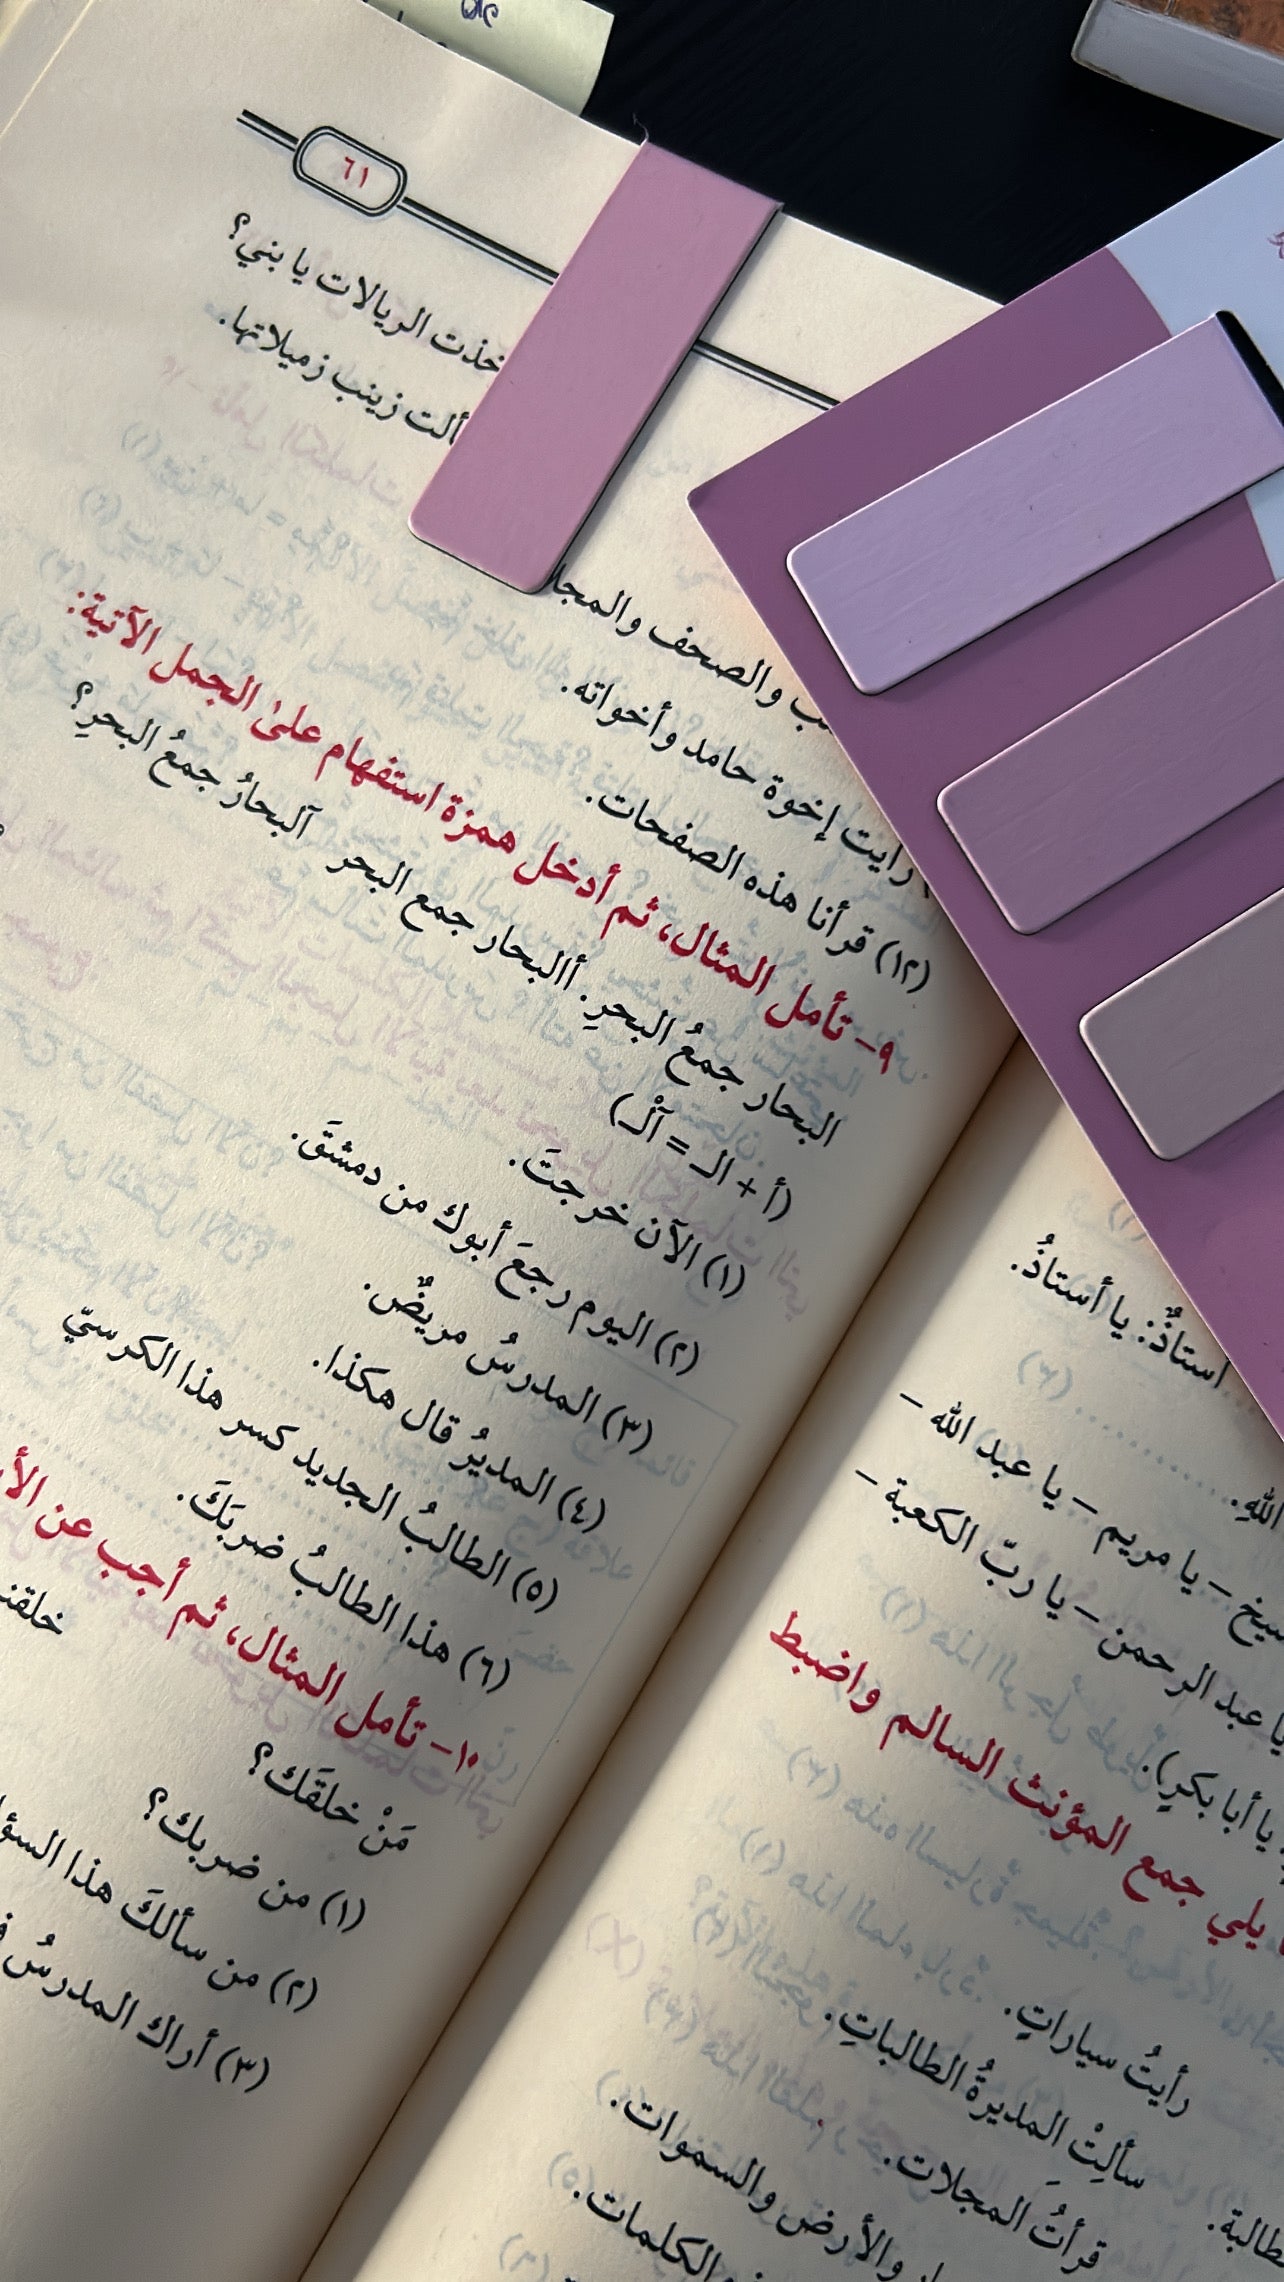 ٦١
خذت الريالات يا بني؟
ألت زينب زميلاتها.
والصحف والمجلا
رأيت إخوة حامد وأخواته.
(١٢) قرأنا هذه الصفحات.
٩- تأمل المثال، ثم أدخل همزة استفهام علىٰ الجمل الآتية:
البحار جمعُ البحرِ. أالبحار جمع البحر آلبحارُ جمعُ البحرِ؟
(أ + الـ = آلْـ)
(١) الآن خرجتَ.
(٢) اليوم رجعَ أبوك من دمشقَ.
(٣) المدرسُ مريضٌ.
(٤) المديرُ قال هكذا.
(٥) الطالبُ الجديد كسر هذا الكرسيّ
(٦) هذا الطالبُ ضربَكَ.
١٠- تأمل المثال، ثم أجب عن الأ
مَنْ خلقَك؟
(١) من ضربك؟
(٢) من سألكَ هذا السؤا
(٣) أراك المدرسُ
أستاذٌ: يا أستاذُ.
اللهِ.
يا مريم – يا عبد الله –
يا عبد الرحمن – يا ربّ الكعبة –
يا أبا بكرٍ).
يلي جمع المؤنث السالم واضبط
رأيتُ سياراتٍ.
سألتْ المديرةُ الطالباتِ.
طالبة.
قرأتُ المجلات.
والأرض والسموات.
الكلمات.